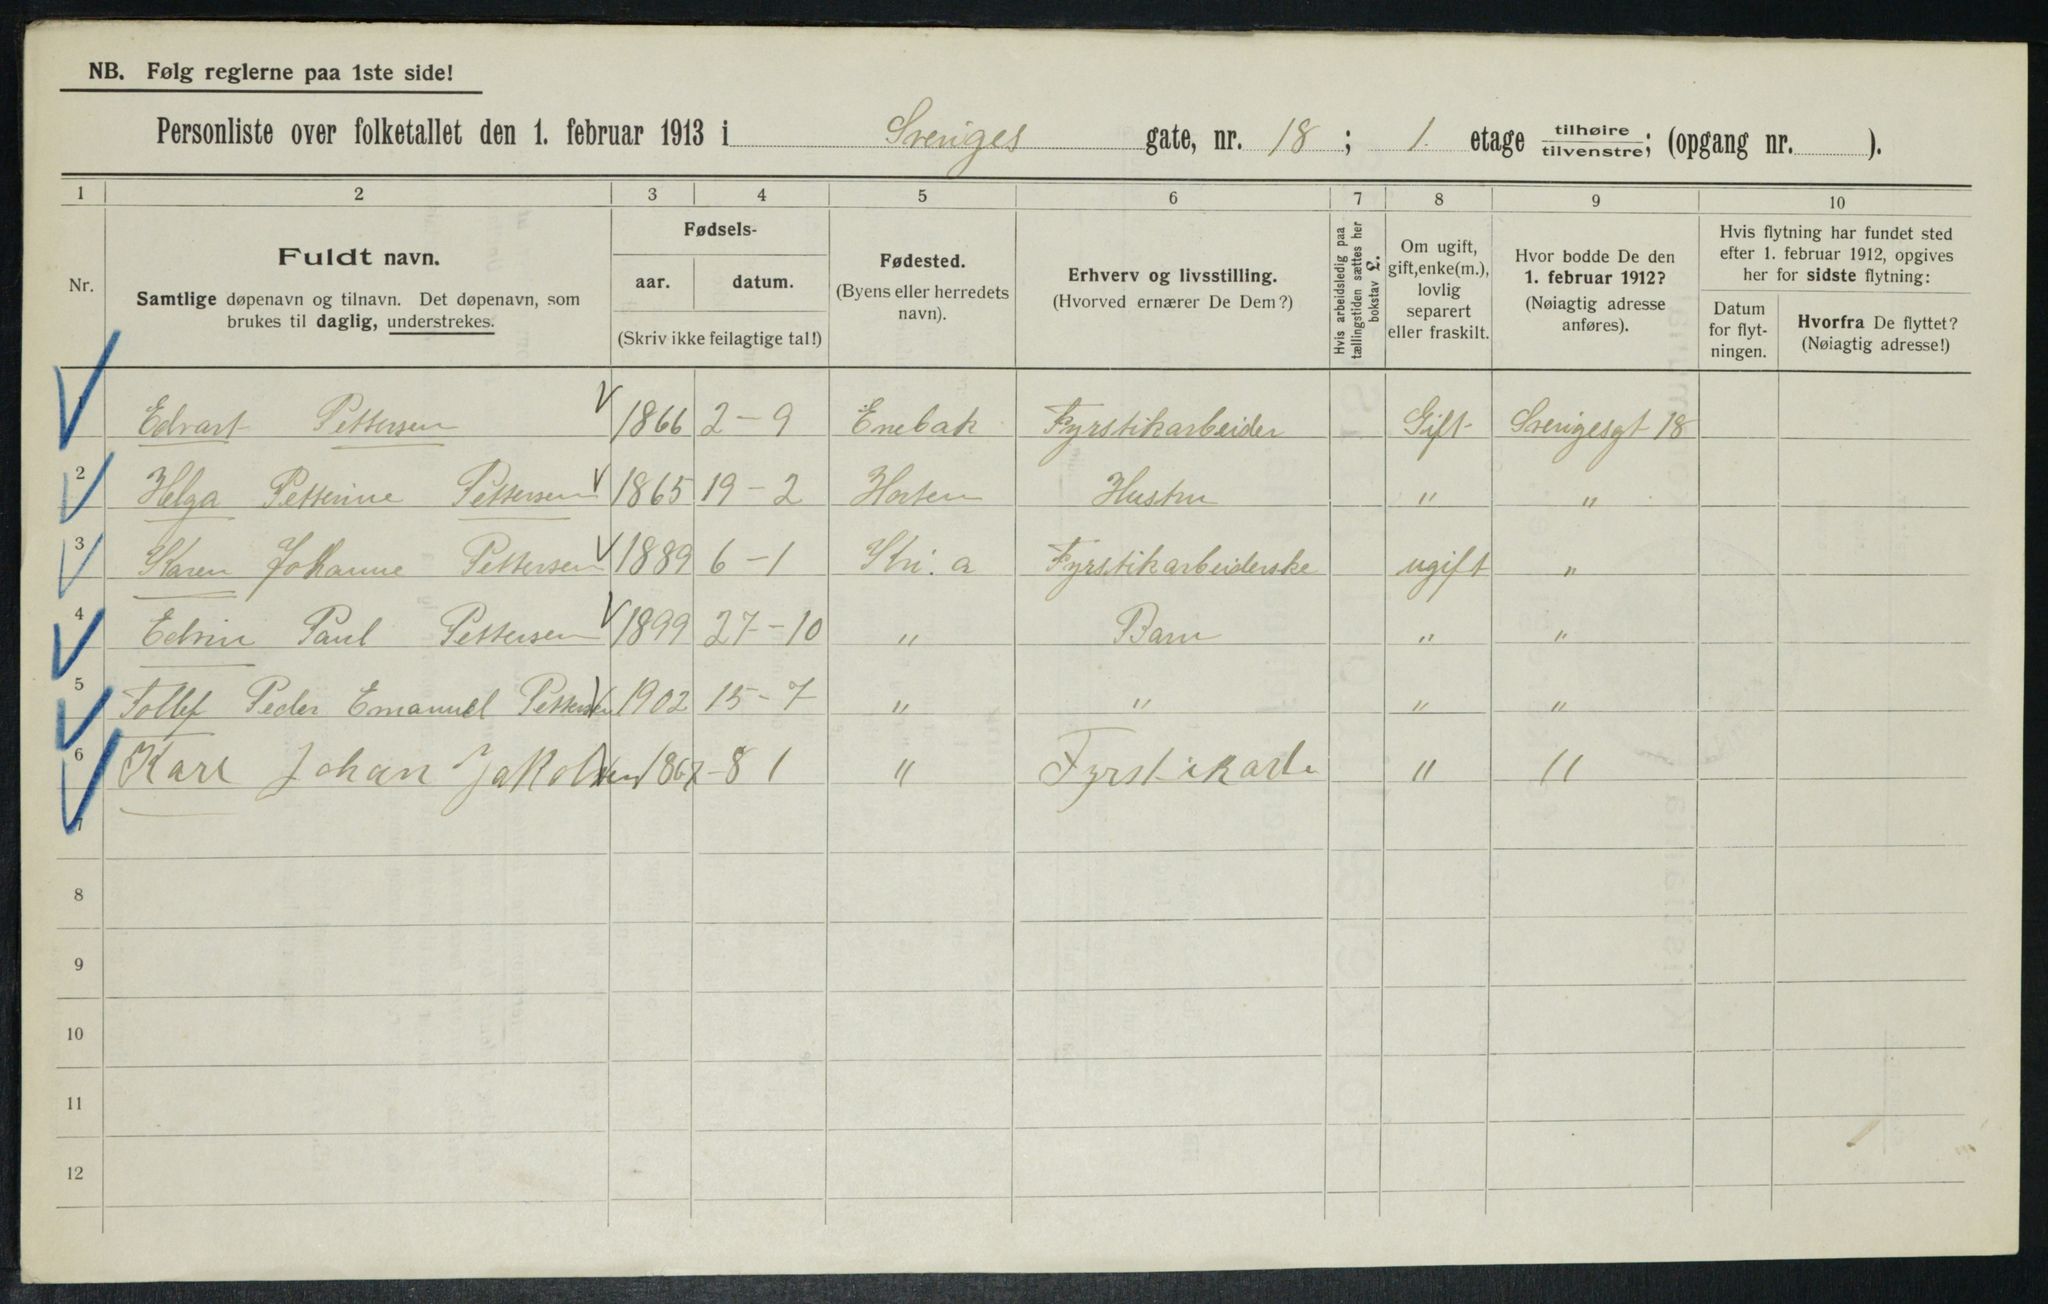 NB. Følg reglerne paa 1ste side!
Personliste over folketallet den 1. februar 1913 i Sveriges gate, nr. 18 ; 1. etage tilhøire/tilvenstre; (opgang nr. ).
1 2 3 4 5 6 7 8 9 10
Nr.
Fuldt navn.
Samtlige døpenavn og tilnavn. Det døpenavn, som
brukes til daglig, understrekes.
Fødsels-
aar. datum.
(Skriv ikke feilagtige tal!)
Fødested.
(Byens eller herredets
navn).
Erhverv og livsstilling.
(Hvorved ernærer De Dem?)
Hvis arbeidsledig paa
tællingstiden sættes her
bokstav L.
Om ugift,
gift, enke(m.),
lovlig
separert
eller fraskilt.
Hvor bodde De den
1. februar 1912?
(Nøiagtig adresse
anføres).
Hvis flytning har fundet sted
efter 1. februar 1912, opgives
her for sidste flytning:
Datum
for flyt-
ningen.
Hvorfra De flyttet?
(Nøiagtig adresse!)
Edvart Pettersen 1866 2-9 Enebak Fyrstikarbeider Gift Sverigesgt 18
2 Helga Petterine Pettersen 1865 19-2 Horten Hustru " "
3 Karen Johanne Pettersen 1889 6-1 Kri.a Fyrstikarbeiderske ugift "
4 Edvin Paul Pettersen 1899 27-10 " Barn " "
5 Tollef Peder Emanuel Pettersen 1902 15-7 " " " "
6 Karl Johan Jakobsen 1867 -8 1 " Fyrstikarb. " "
7
8
9
10
11
12